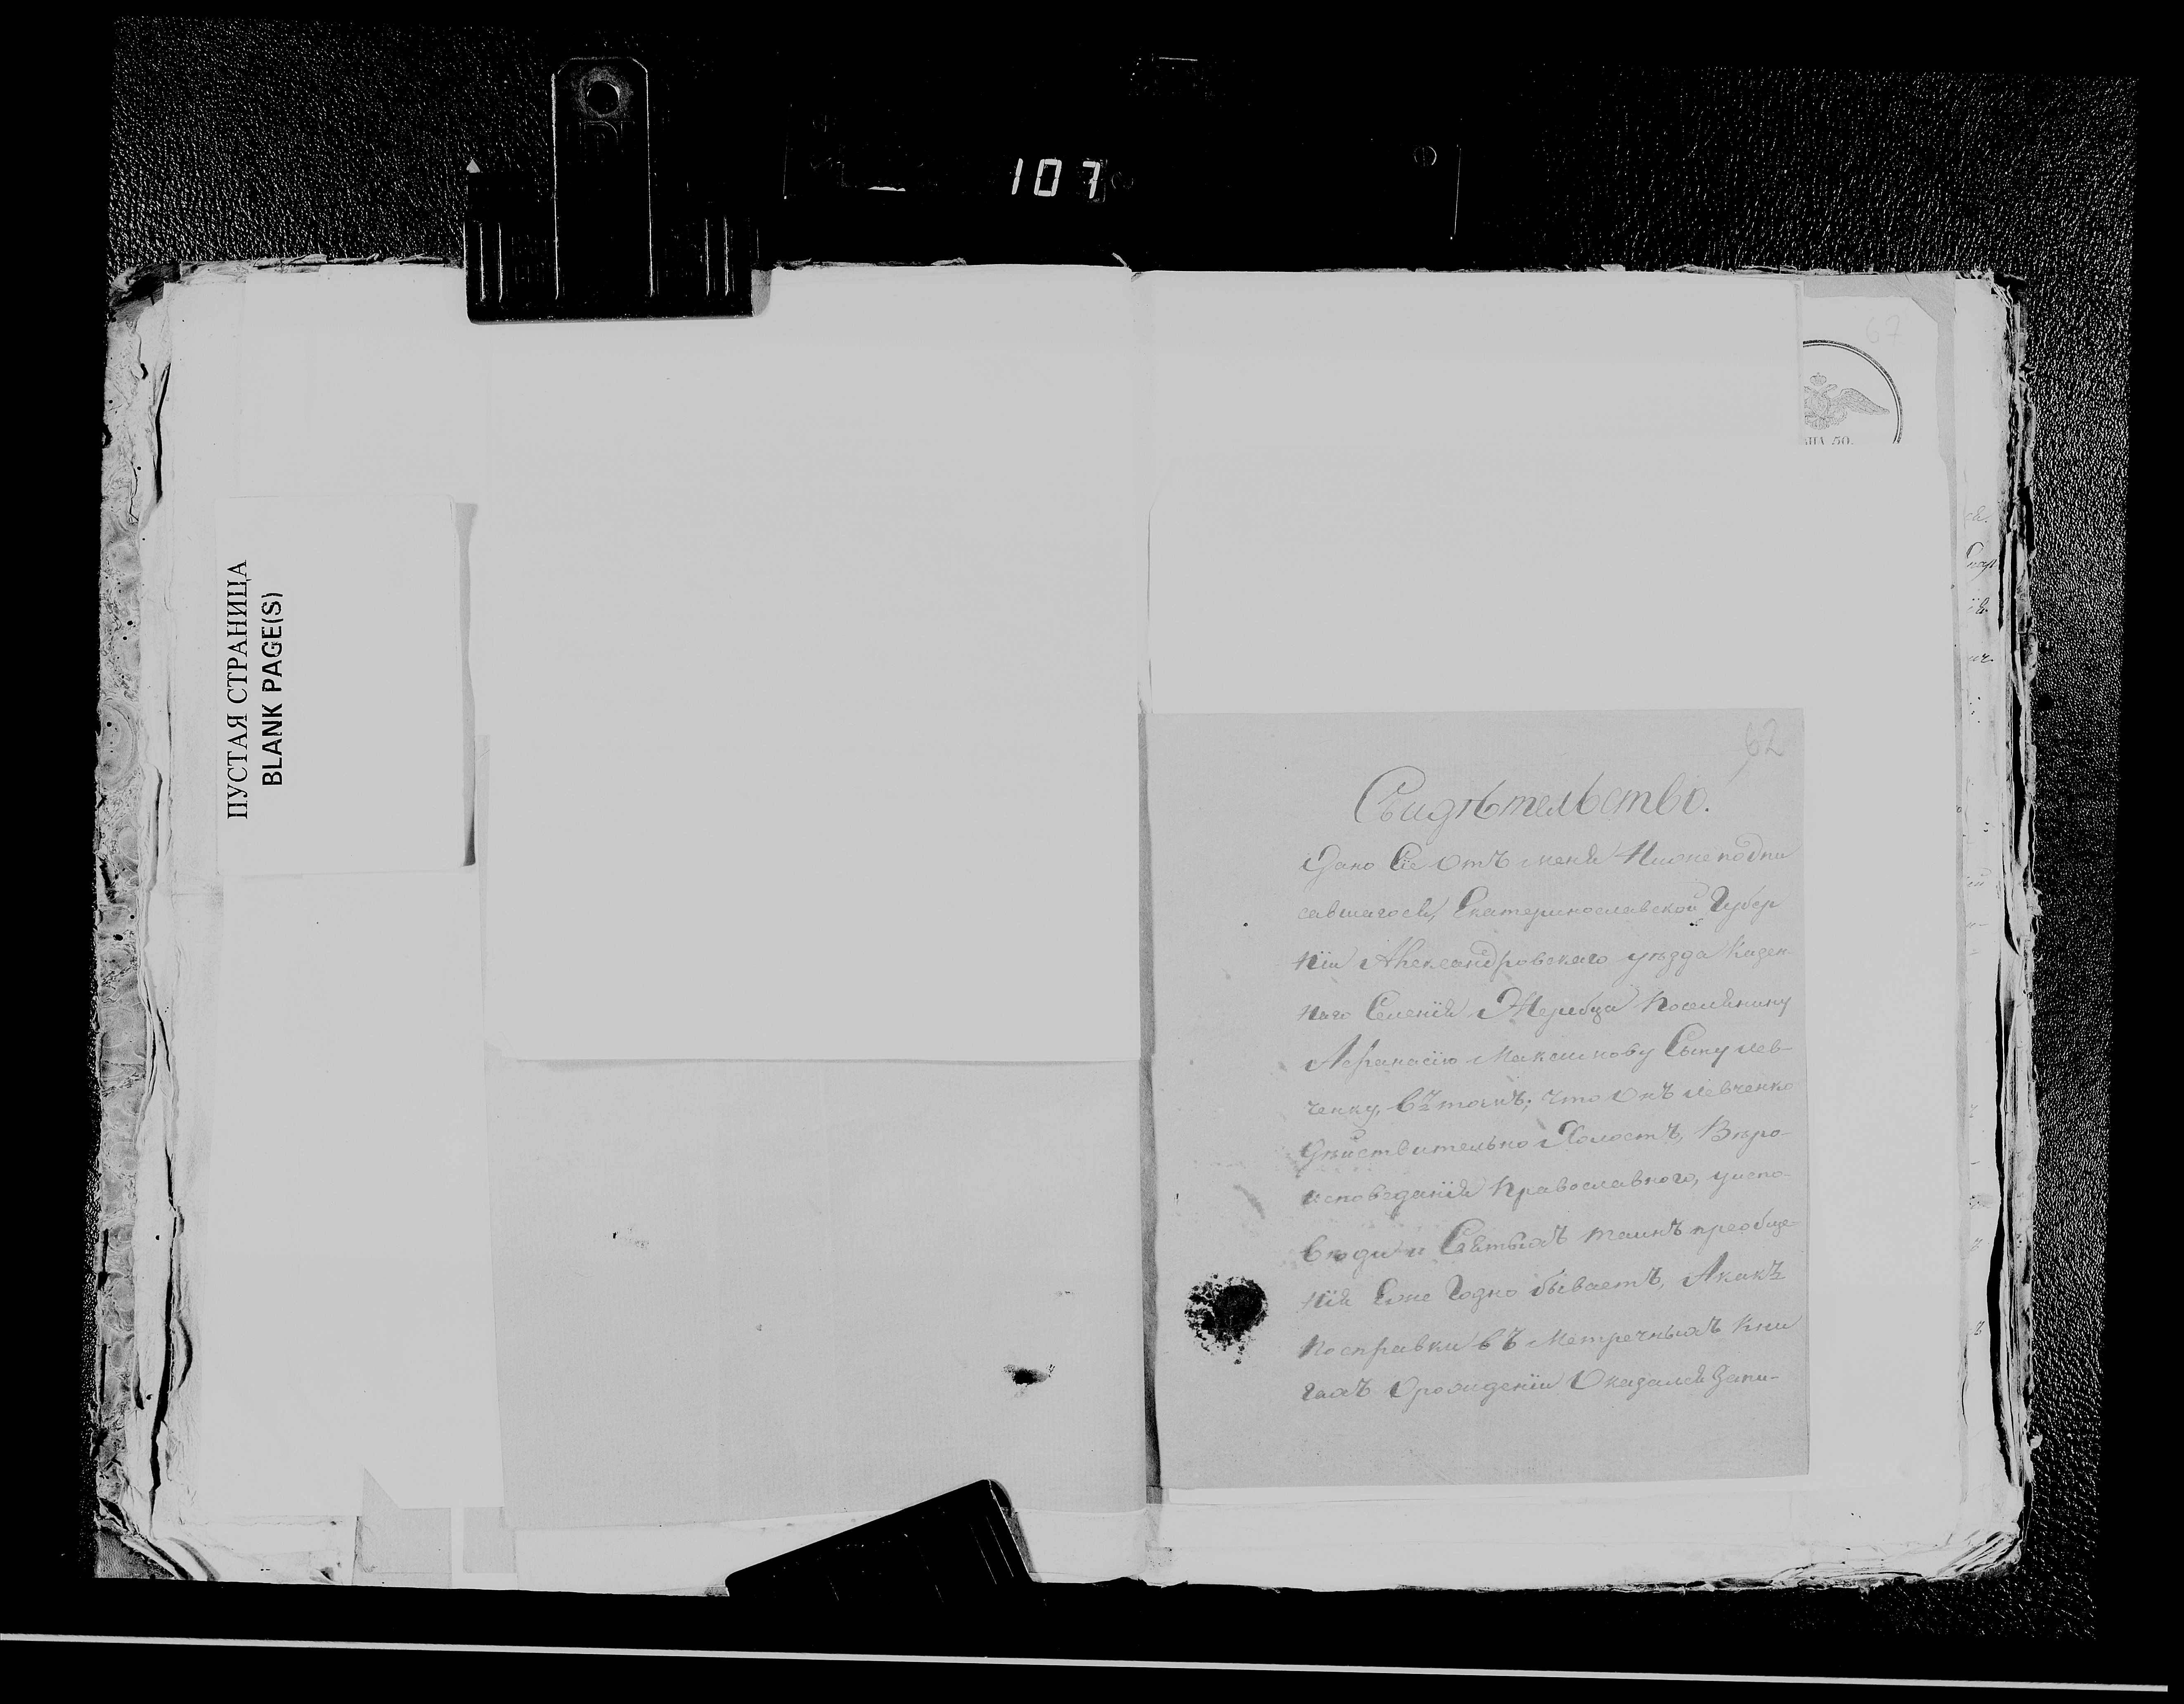 107
67
ПУСТАЯ СТРАНИЦА
BLANK PAGE(S)
62
Свидѣтельство.
Дано Сіе Отъ меня Нижеподпи
савшагося, Екатеринославской Губер
ніи Александровскаго уѣзда Казен-
наго Селенія Жеребца Поселянину
Афанасію Максимову Сыну Лев-
ченку, въ томъ; что Онъ Левченко
дѣйствительно Холостъ, Вѣро-
исповеданія Православного, уиспо-
вѣди и Святыхъ таинъ преобще-
нія Еже Годно бываетъ, Акакъ
Посправки въ Метречныхъ Кни
гахъ Орождении Оказался Запи-